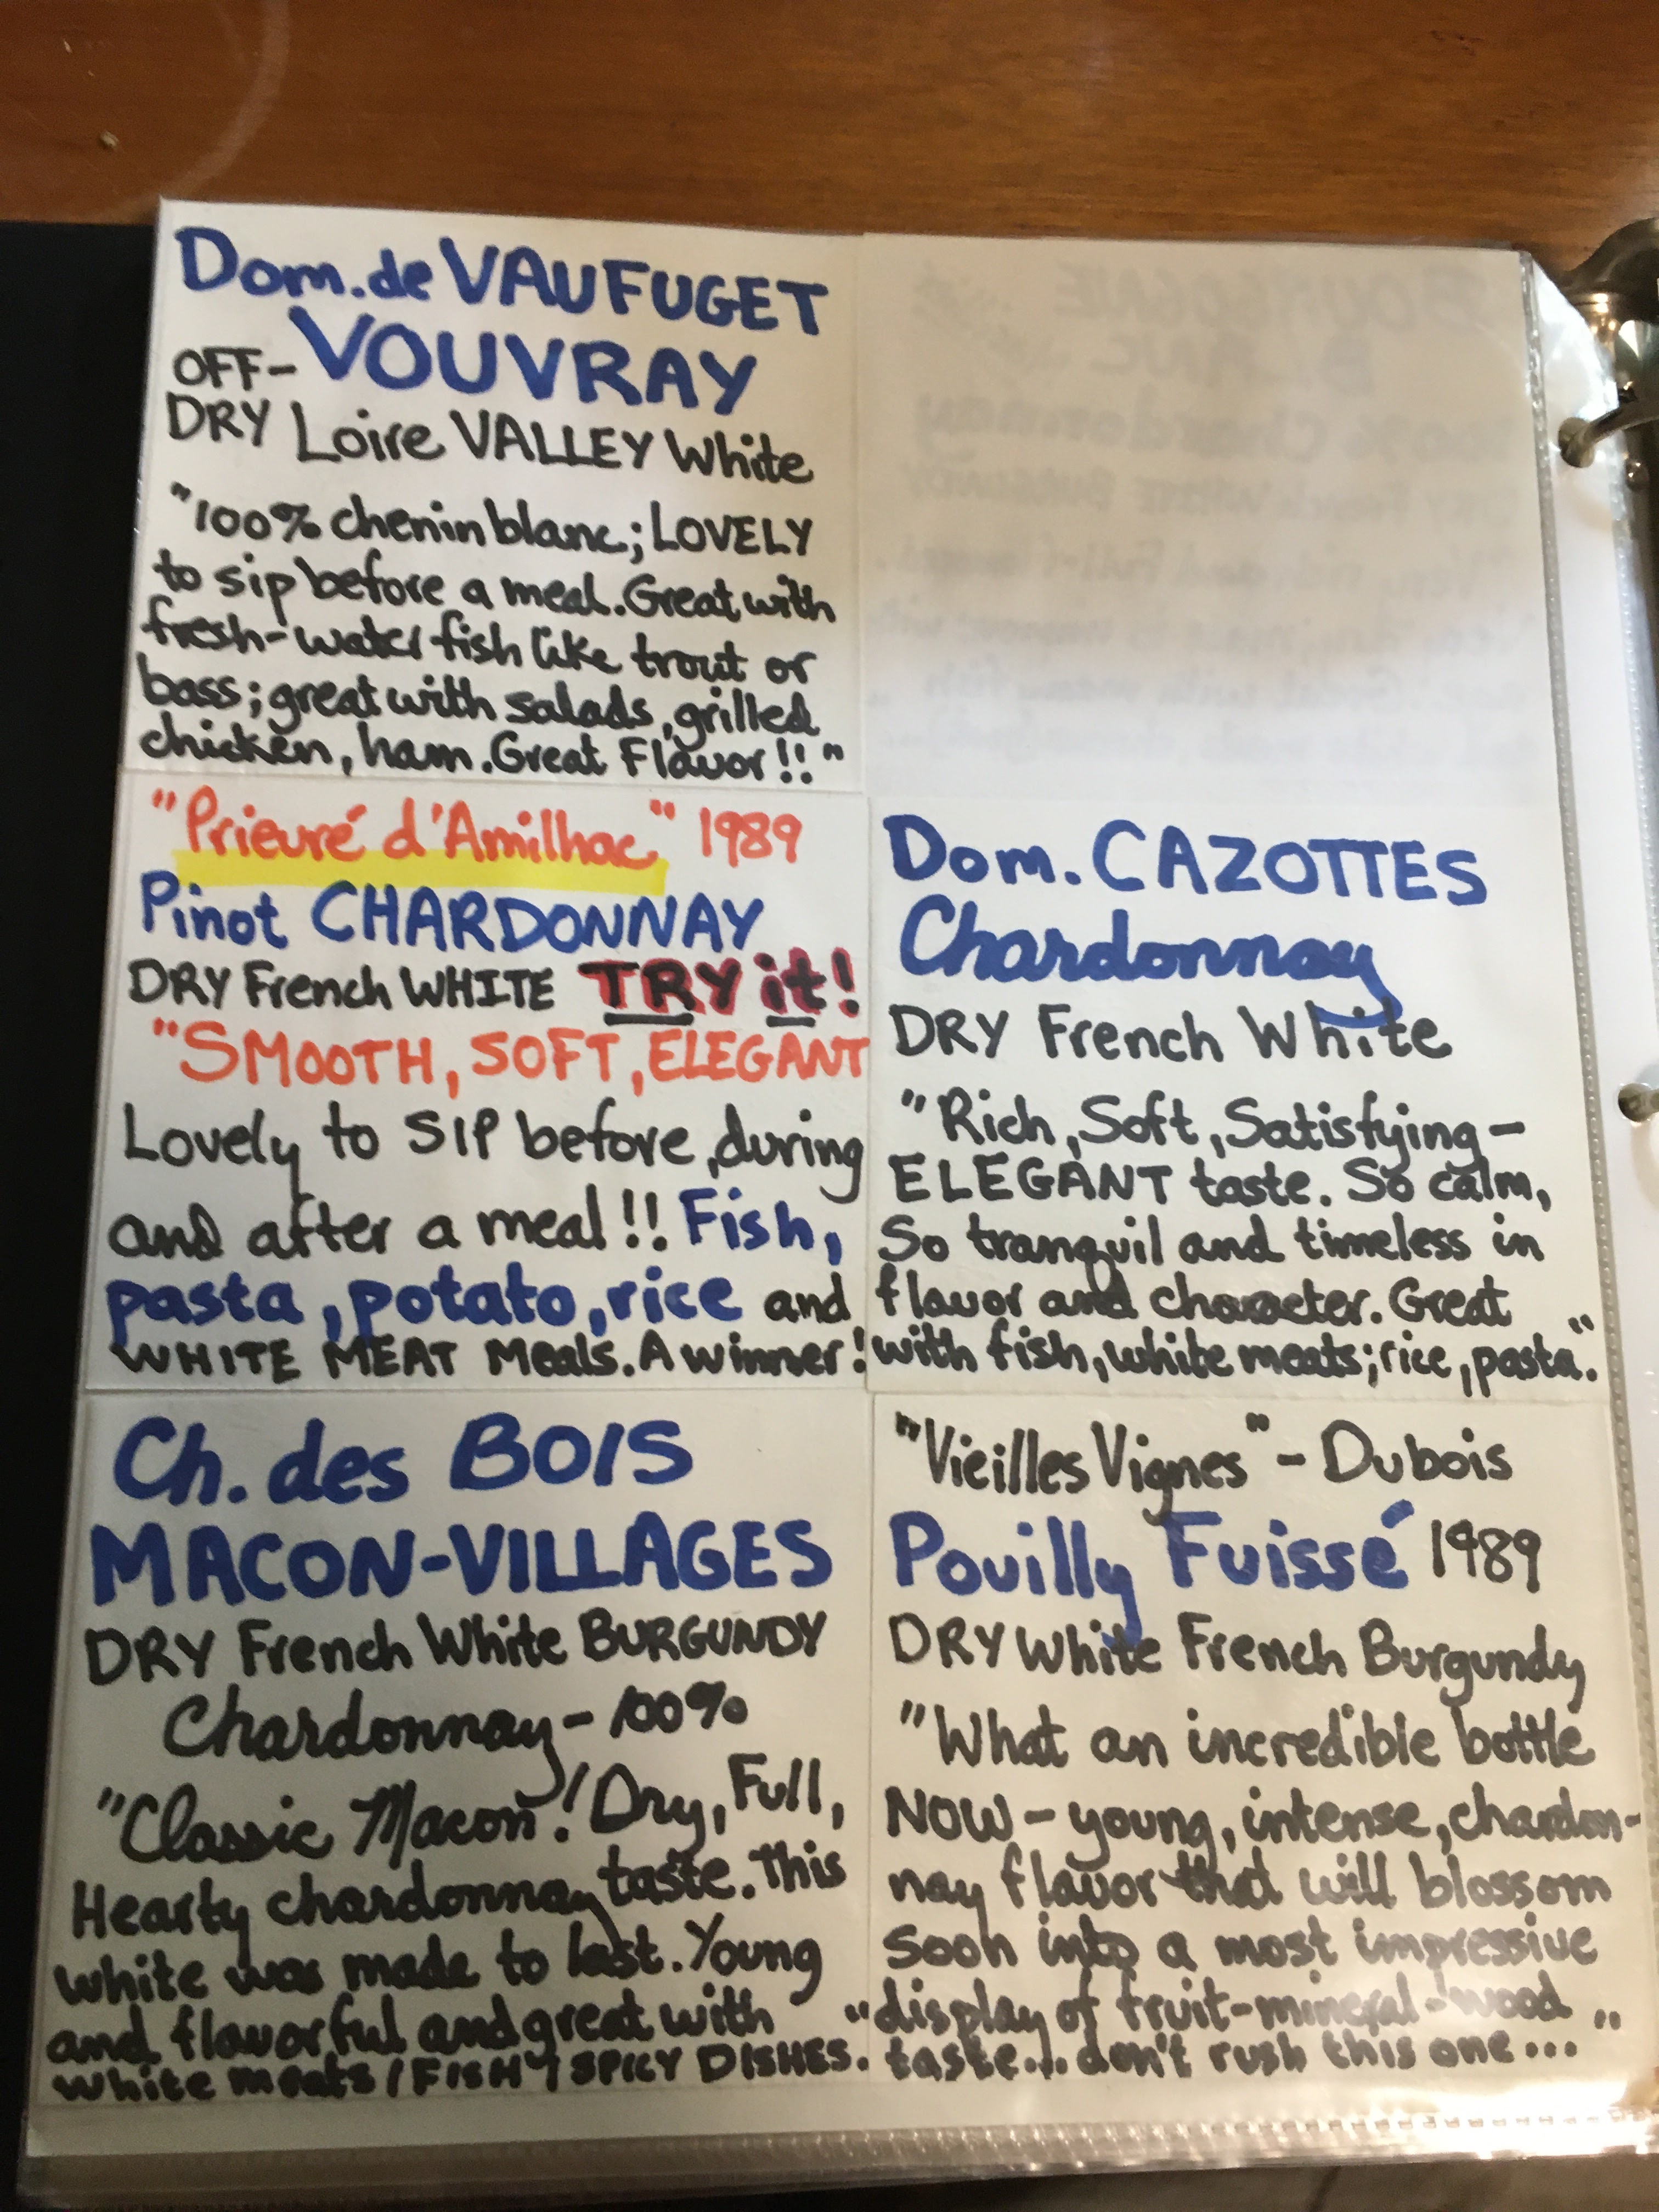 Dom. de VAUFUGET
VOUVRAY
OFF-
DRY Loire VALLEY White
"100% chenin blanc; LOVELY
to sip before a meal. Great with
fresh-water fish like trout or
bass; great with salads, grilled
chicken, ham. Great Flavor!!"
"Prieuré d'Amilhac" 1989
Pinot CHARDONNAY
DRY French WHITE TRY it!
"SMOOTH, SOFT, ELEGANT
Lovely to SIP before, during
and after a meal!! Fish,
pasta, potato, rice and
WHITE MEAT Meals. A winner!
Dom. CAZOTTES
Chardonnay
DRY French White
"Rich, Soft, Satisfying-
ELEGANT taste. So calm,
So tranquil and timeless in
flavor and character. Great
with fish, white meats; rice, pasta."
Ch. des BOIS
MACON-VILLAGES
DRY French White BURGUNDY
Chardonnay - 100%
"Classic Macon! Dry, Full,
Hearty chardonnay taste. This
white was made to last. Young
and flavorful and great with
white meats/FISH/SPICY DISHES."
"Vieilles Vignes" - Dubois
Pouilly Fuissé 1989
DRY White French Burgundy
"What an incredible bottle
NOW - young, intense, chardon-
nay flavor that will blossom
soon into a most impressive
display of fruit-mineral-wood
taste... don't rush this one..."